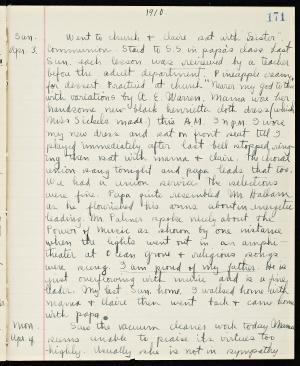 1910
171
Sun. Went to church & Claire sat with "Sister".
Apr. 3. Communion. Staid to S.S. in papa's class. Last
Sun. each lesson was reviewed by a teacher
before the adult department. Pineapple cream
for dessert. Practiced at church "Nearer my God to thee"
with variations by G. E. Warren. Mama wore her
handsome new black henrietta cloth dress (which
Miss Sickels made) this A.M. In P.M. I wore
my new dress and sat on front seat till I
played immediately after last bell stopped ring-
ing then sat with mama & Claire. The choral
union sang tonight and papa leads that too.
We had a union service. The selections
were fine. Papa quite resembled Mr.
as he flourished his arms about in energetic
leading. Mr. Palmer spoke nicely about the
Power of Music as shown by one instance
when the lights went out in an amphi-
theater at Ocean Grove & religious songs
were sung. I am proud of my father. He is
just overflowing with music and is a fine
leader. My last Sun. home. I walked home with
mama & Claire then went back & came home
with papa.
Mon. Saw the vacuum cleaner work today. Mama
Apr. 4 seems unable to praise its virtues too
highly. Usually she is not in sympathy